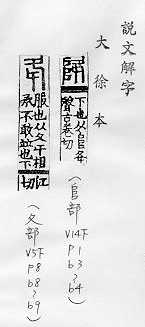 說文解字
大徐本
下也从𨸏夅
聲古巷切
(𨸏部 V14下 P1 b3~b4)
服也从夂㐄相
承不敢竝也下江
切
(夂部 V5下 P8 b8~b9)